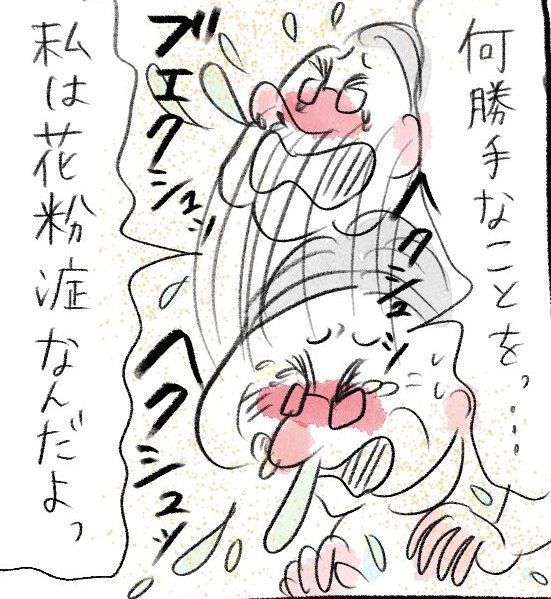 何勝手なことを、…
ヘタシュン
ブエクシュン
ヘクシュッ
私は花粉症なんだよっ